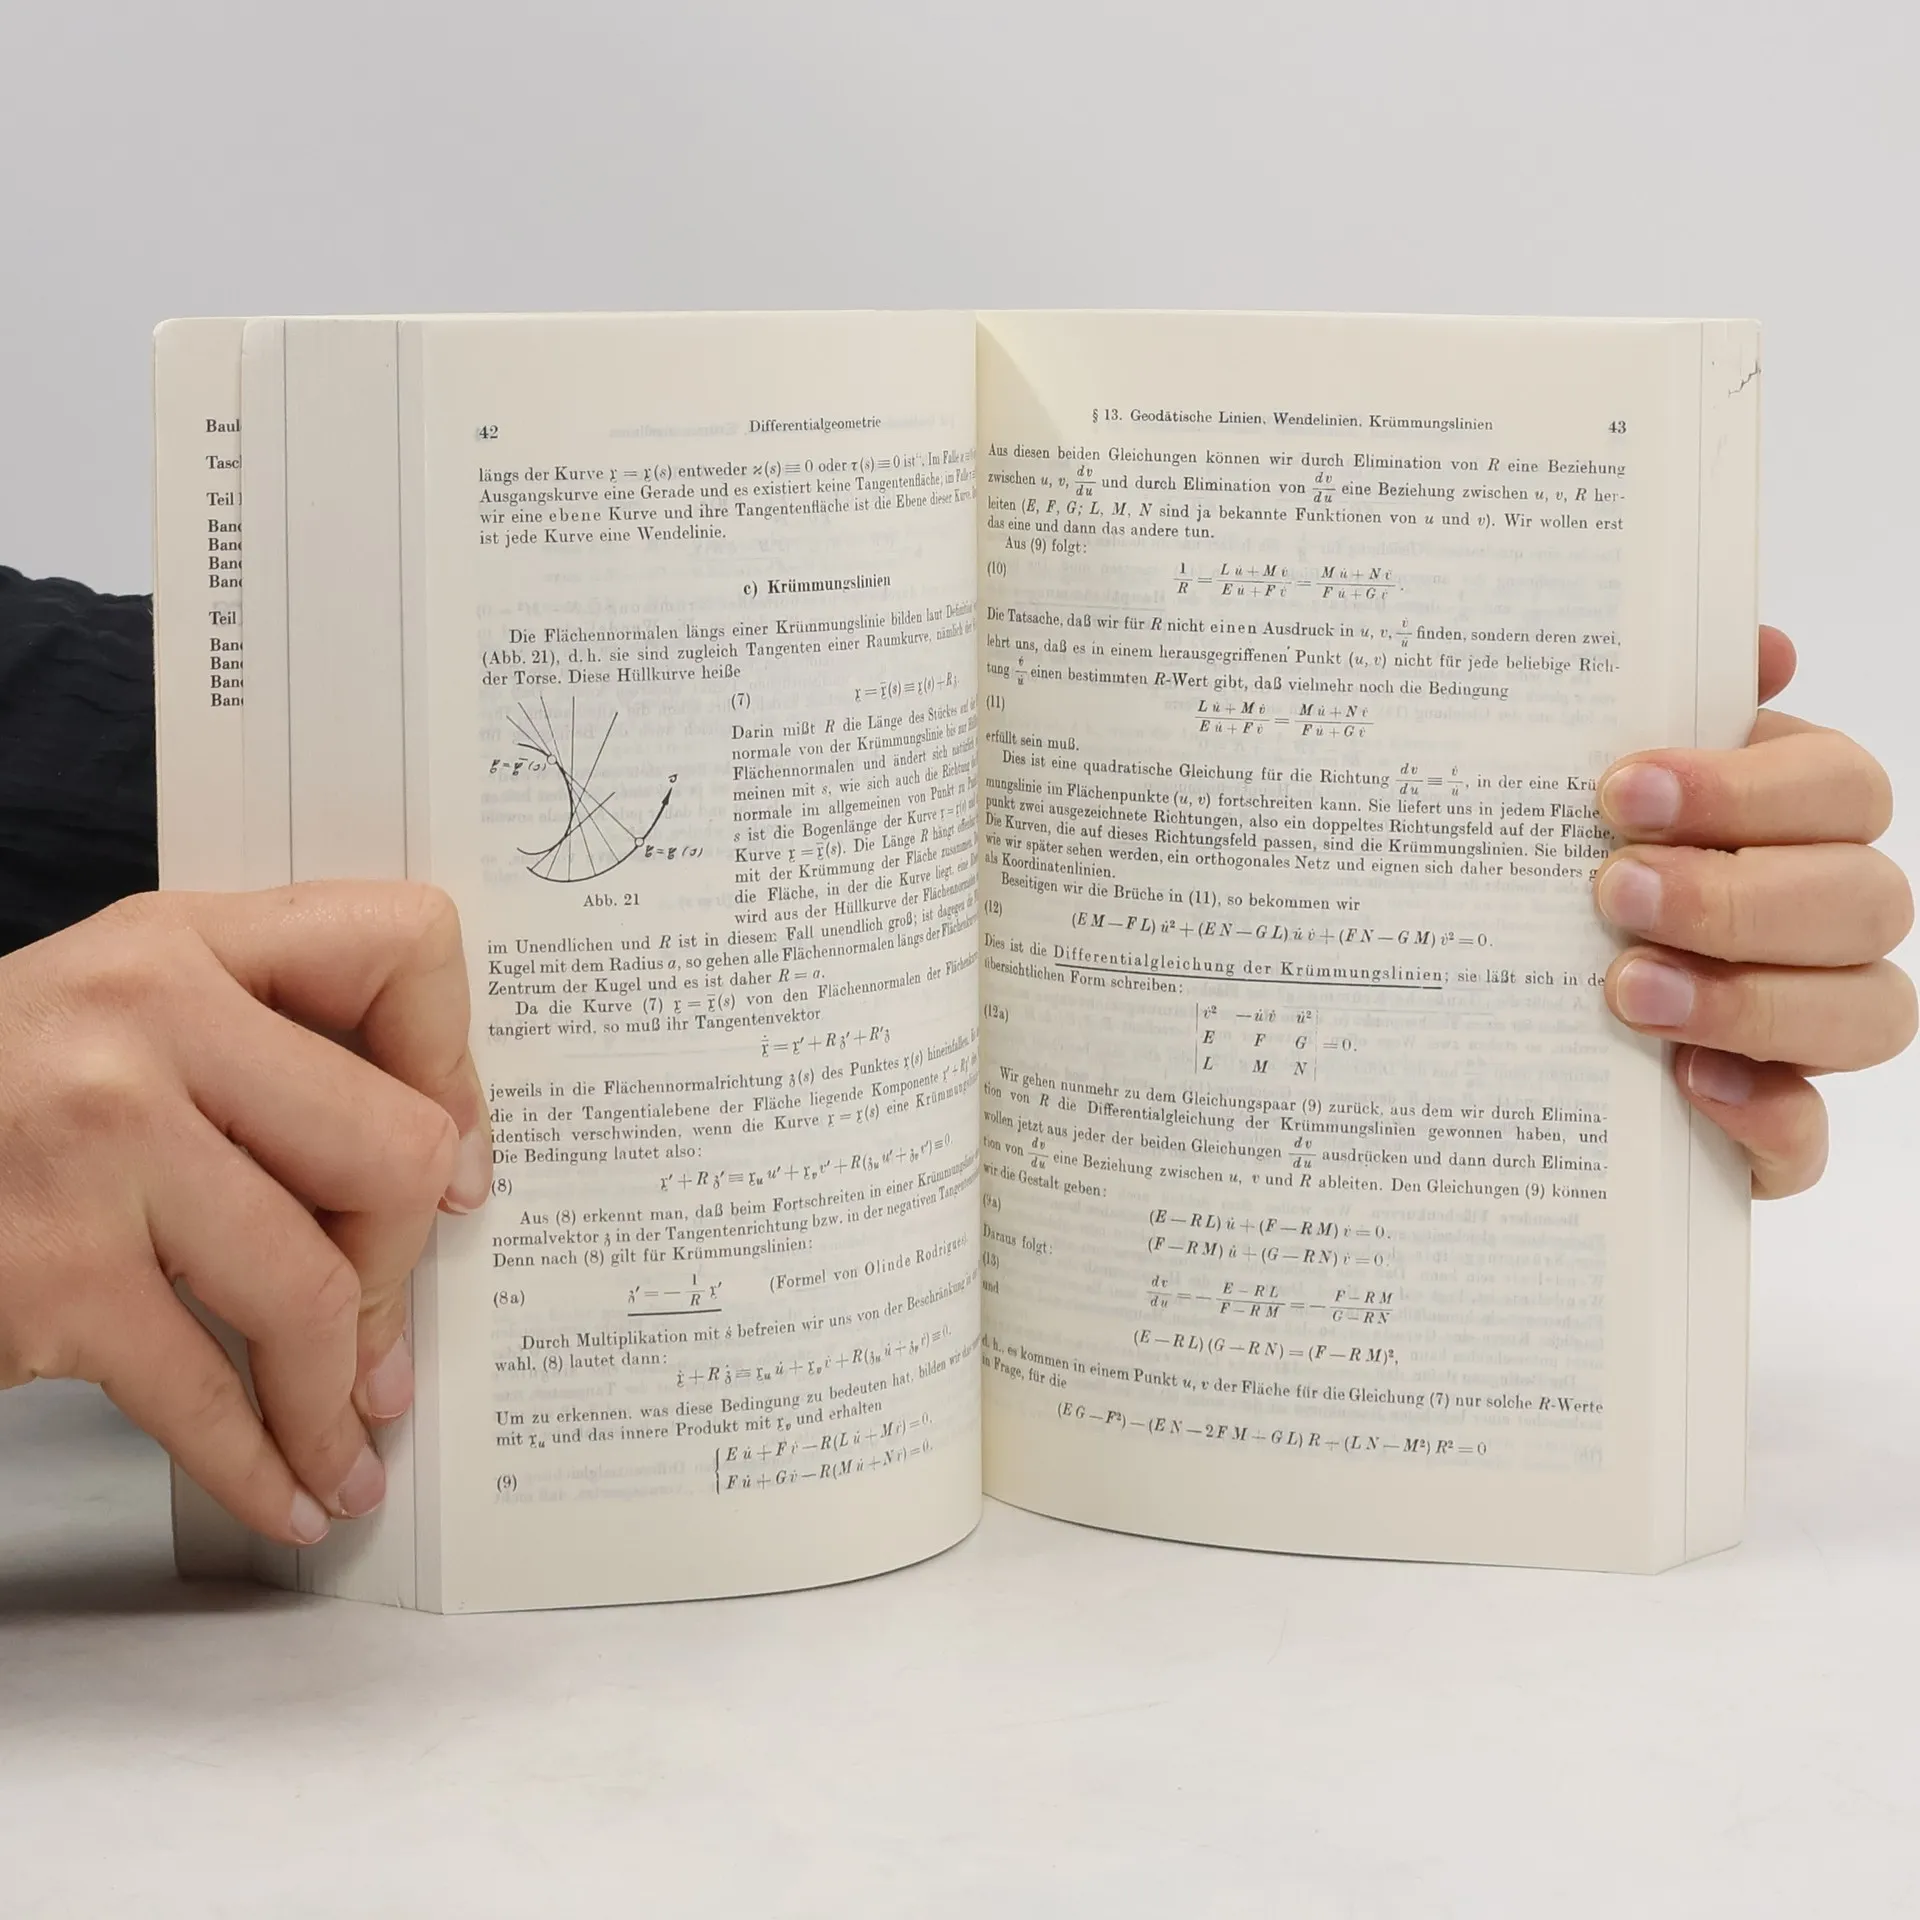 Baul
Tasc
Teil
Band
Band
Band
Band
Teil
Band
Band
Band
Band
42 Differentialgeometrie
längs der Kurve 𝔵 = 𝔵(s) entweder ϰ(s) ≡ 0 oder τ(s) ≡ 0 ist“. Im Falle
Ausgangskurve eine Gerade und es existiert keine Tangentenfläche, im Falle
wir eine ebene Kurve und ihre Tangentenfläche ist die Ebene dieser Kurve.
ist jede Kurve eine Wendelinie.
c) Krümmungslinien
Die Flächennormalen längs einer Krümmungslinie bilden laut Definition
(Abb. 21), d. h. sie sind zugleich Tangenten einer Raumkurve, nämlich der
der Torse. Diese Hüllkurve heiße
(7) 𝔵 = 𝔵̄(s) ≡ 𝔵(s) + R𝔷
𝔵 = 𝔵̄(s)
s
𝔵 = 𝔵(s)
Abb. 21
Darin mißt R die Länge des Stückes auf der
normale von der Krümmungslinie bis zur
Flächennormalen und ändert sich natürlich
meinen mit s, wie sich auch die Richtung
normale im allgemeinen von Punkt zu
s ist die Bogenlänge der Kurve 𝔵 = 𝔵(s) und
Kurve 𝔵 = 𝔵̄(s). Die Länge R hängt offenbar
mit der Krümmung der Fläche zusammen.
die Fläche, in der die Kurve liegt, eine
wird aus der Hüllkurve der Flächennormalen
im Unendlichen und R ist in diesem Fall unendlich groß; ist dagegen die
Kugel mit dem Radius a, so gehen alle Flächennormalen längs der Flächenkurve
Zentrum der Kugel und es ist daher R = a.
Da die Kurve (7) 𝔵 = 𝔵̄(s) von den Flächennormalen der Flächenkurve
tangiert wird, so muß ihr Tangentenvektor
𝔵̄̇ = 𝔵′ + R𝔷′ + R′𝔷
jeweils in die Flächennormalrichtung 𝔷(s) des Punktes 𝔵(s) hineinfallen,
die in der Tangentialebene der Fläche liegende Komponente 𝔵′ + R𝔷′
identisch verschwinden, wenn die Kurve 𝔵 = 𝔵(s) eine Krümmungslinie
Die Bedingung lautet also:
(8) 𝔵′ + R𝔷′ ≡ 𝔵ᵤu′ + 𝔵ᵥv′ + R(𝔷ᵤu′ + 𝔷ᵥv′) ≡ 0.
Aus (8) erkennt man, daß beim Fortschreiten in einer Krümmungslinie
normalvektor 𝔷 in der Tangentenrichtung bzw. in der negativen
Denn nach (8) gilt für Krümmungslinien:
(8a) 𝔷′ = − 1/R 𝔵′ (Formel von Olinde Rodrigues).
Durch Multiplikation mit ṡ befreien wir uns von der Beschränkung in der
wahl, (8) lautet dann:
𝔵̇ + R𝔷̇ ≡ 𝔵ᵤu̇ + 𝔵ᵥv̇ + R(𝔷ᵤu̇ + 𝔷ᵥv̇) ≡ 0.
Um zu erkennen, was diese Bedingung zu bedeuten hat, bilden wir das
mit 𝔵ᵤ und das innere Produkt mit 𝔵ᵥ und erhalten
(9) { Eu̇ + Fv̇ − R(Lu̇ + Mv̇) = 0,
Fu̇ + Gv̇ − R(Mu̇ + Nv̇) = 0.
§ 13. Geodätische Linien, Wendelinien, Krümmungslinien 43
Aus diesen beiden Gleichungen können wir durch Elimination von R eine Beziehung
zwischen u, v, dv/du und durch Elimination von dv/du eine Beziehung zwischen u, v, R her-
leiten (E, F, G; L, M, N sind ja bekannte Funktionen von u und v). Wir wollen erst
das eine und dann das andere tun.
Aus (9) folgt:
(10) 1/R = (Lu̇ + Mv̇)/(Eu̇ + Fv̇) = (Mu̇ + Nv̇)/(Fu̇ + Gv̇).
Die Tatsache, daß wir für R nicht einen Ausdruck in u, v, v̇/u̇ finden, sondern deren zwei,
lehrt uns, daß es in einem herausgegriffenen Punkt (u, v) nicht für jede beliebige Rich-
tung v̇/u̇ einen bestimmten R-Wert gibt, daß vielmehr noch die Bedingung
(11) (Lu̇ + Mv̇)/(Eu̇ + Fv̇) = (Mu̇ + Nv̇)/(Fu̇ + Gv̇)
erfüllt sein muß.
Dies ist eine quadratische Gleichung für die Richtung dv/du ≡ v̇/u̇, in der eine Krü
mungslinie im Flächenpunkte (u, v) fortschreiten kann. Sie liefert uns in jedem Fläche
punkt zwei ausgezeichnete Richtungen, also ein doppeltes Richtungsfeld auf der Fläche.
Die Kurven, die auf dieses Richtungsfeld passen, sind die Krümmungslinien. Sie bilden
wie wir später sehen werden, ein orthogonales Netz und eignen sich daher besonders g
als Koordinatenlinien.
Beseitigen wir die Brüche in (11), so bekommen wir
(12) (EM − FL)u̇² + (EN − GL)u̇v̇ + (FN − GM)v̇² = 0.
Dies ist die Differentialgleichung der Krümmungslinien; sie läßt sich in de
übersichtlichen Form schreiben:
(12a) | v̇² −u̇v̇ u̇² |
| E F G | = 0.
| L M N |
Wir gehen nunmehr zu dem Gleichungspaar (9) zurück, aus dem wir durch Elimina-
tion von R die Differentialgleichung der Krümmungslinien gewonnen haben, und
wollen jetzt aus jeder der beiden Gleichungen dv/du ausdrücken und dann durch Elimina-
tion von dv/du eine Beziehung zwischen u, v und R ableiten. Den Gleichungen (9) können
wir die Gestalt geben:
(9a) (E − RL)u̇ + (F − RM)v̇ = 0.
(F − RM)u̇ + (G − RN)v̇ = 0.
Daraus folgt:
(13) dv/du = − (E − RL)/(F − RM) = − (F − RM)/(G − RN)
und
(E − RL)(G − RN) = (F − RM)²,
d. h., es kommen in einem Punkt u, v der Fläche für die Gleichung (7) nur solche R-Werte
in Frage, für die
(EG − F²) − (EN − 2FM + GL)R + (LN − M²)R² = 0